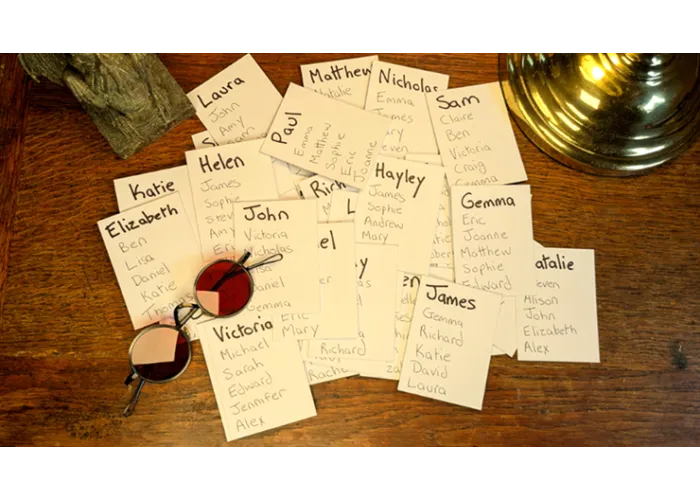 Laura
John
Amy
Matthew
Natalie
Nicholas
Emma
James
Paul
Emma
Matthew
Sophie
Eric
Joanne
Sam
Claire
Ben
Victoria
Craig
Gemma
Helen
James
Katie
Elizabeth
Ben
Lisa
Daniel
Katie
Thomas
John
Victoria
Nicholas
Gemma
Hayley
James
Sophie
Andrew
Mary
Gemma
Eric
Joanne
Matthew
Sophie
Edward
Alison
John
Elizabeth
Alex
James
Gemma
Richard
Katie
David
Laura
Eric
Mary
Richard
Victoria
Michael
Sarah
Edward
Jennifer
Alex